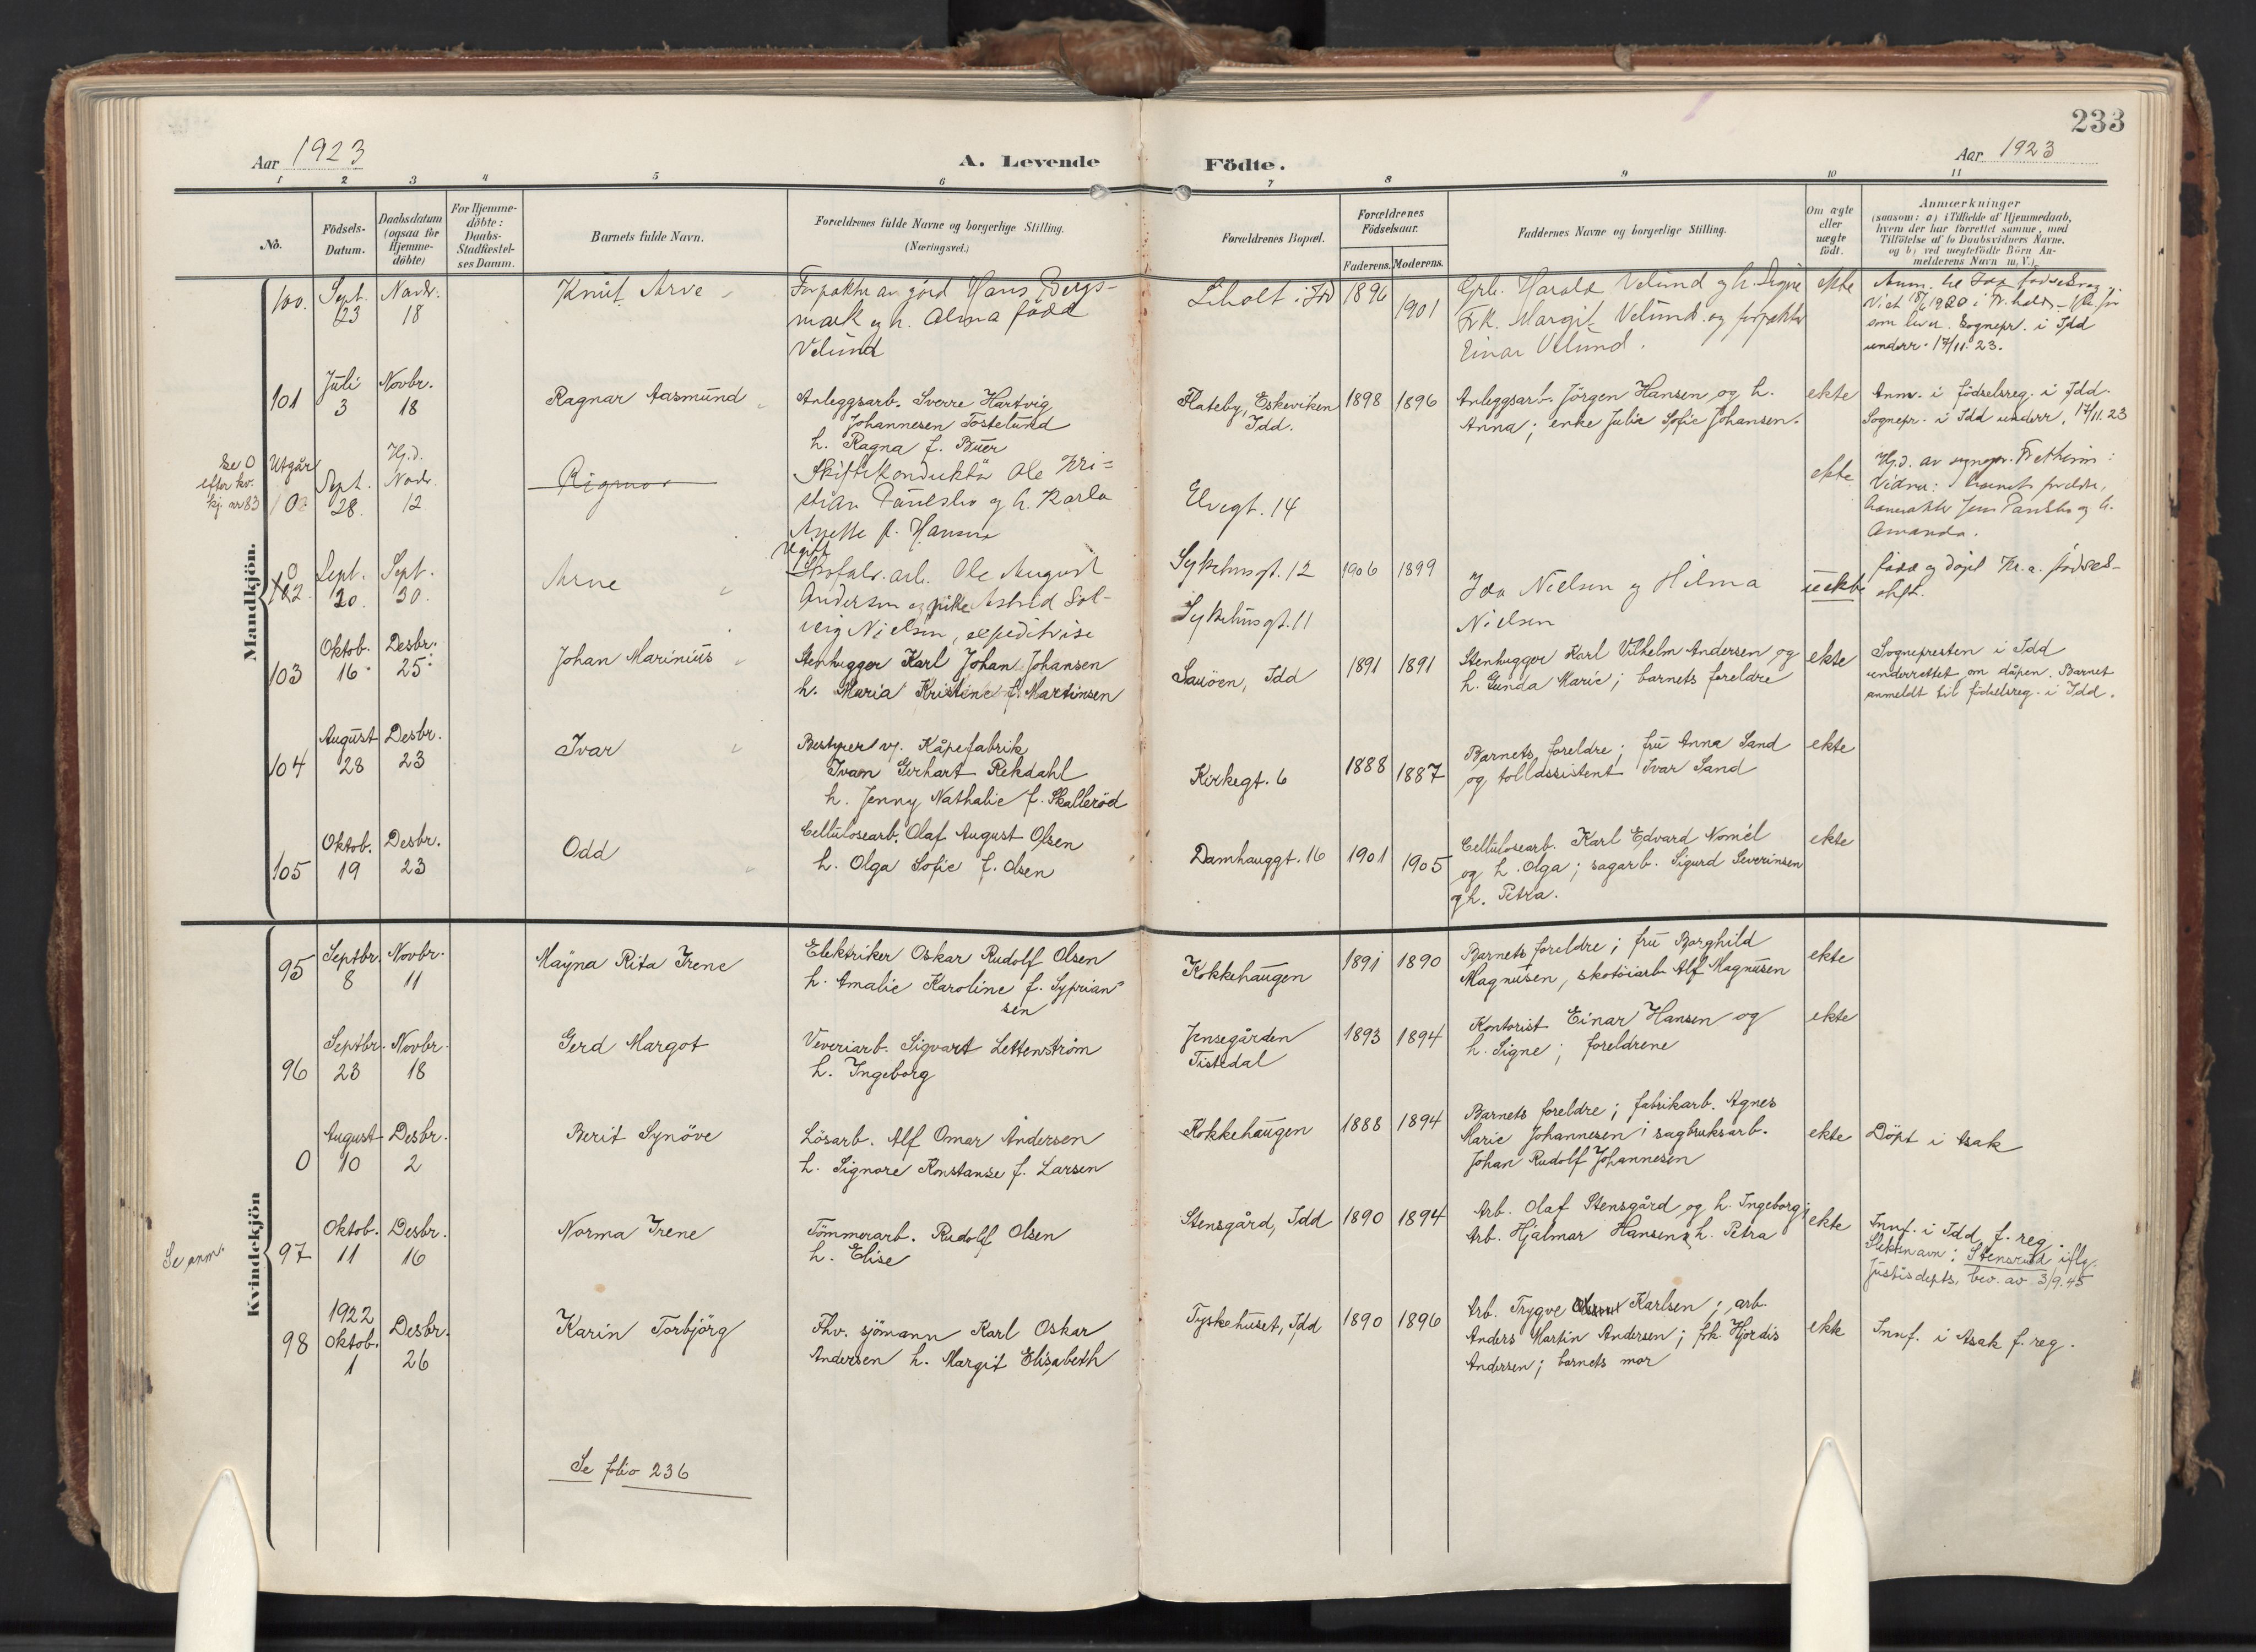 233
Aar 1923
A. Levende
Födte.
Aar 1923
1 2 3 4 5 6 7 8 9 10 11
No.
Födsels-
Datum.
Daabsdatum
(ogsaa for
Hjemme-
döbte)
For Hjemme-
döbte:
Daabs-
Stadfæstel-
ses Datum.
Barnets fulde Navn.
Forældrenes fulde Navne og borgerlige Stilling.
(Næringsvei.)
Forældrenes Bopæl.
Forældrenes
Födselsaar.
Faderens. Moderens.
Faddernes Navne og borgerlige Stilling.
Om ægte
eller
uægte
födt.
Anmærkninger
(saasom: a) i Tilfælde af Hjemmedaab,
hvem der har forrettet samme, med
Tilföielse af to Daabsvidners Navne.
og b) ved uægtefödte Börn An-
melderens Navn m. V.).
Mandkjön.
100.
Sept.
23
Novbr.
18
Knut Arve
Forpakter av gård Hans Bergs-
mark og h. Alma född
Velund
Liholt i Idd
1896
1901
Grb. Harald Velund og h. Signe
Frk. Margit Velund og forpakter
Einar Velund.
ekte
som lever. Sognepr. i Idd
underr. 17/11.23.
101
Juli
3
Novbr.
18
Ragnar Aasmund
Anleggsarb. Sverre Hartvig
Johannesen Tostelund
h. Ragna f. Buer
Flateby, Eskeviken
Idd.
1898
1896
Anleggsarb. Jörgen Hansen og h.
Anna; enke Julie Sofie Johansen.
ekte
Anm. i födselsreg. i Idd.
Sognepr. i Idd underr. 17/11.23
Se 0
efter kv.
kj. nr 83
Utgår
Sept.
28
Hj.d.
Novbr.
12
Rigmor
Ole Kri-
stian Paulsbo og h. Karla
Anette f. Hansen
Elvegt. 14
ekte
Hj.d. av sognepr. Fretheim:
Vidner: barnets foreldre,
Jens Paulsbo og h.
Amanda.
0
102
Sept.
20.
Sept.
30.
Arne
Skofabr. arb. Ole August
Andersen og pike Astrid Sol-
veig Nielsen, expeditrise
Sykehusgt. 12
Sykehusgt. 11
1906
1899
Ida Nielsen og Hilma
Nielsen
uekte
född og döpt Kr.a. födsels-
stift.
103
Oktob.
16
Desbr.
25
Johan Marinius
Stenhugger Karl Johan Johansen
h. Maria Kristine f. Martinsen
Sauöen, Idd
1891
1891
Stenhugger Karl Vilhelm Andersen og
h. Gunda Marie; barnets foreldre
ekte
Sognepresten i Idd
underrettet om dåpen. Barnet
anmeldt til födselsreg. i Idd.
104
August
28
Desbr.
23
Ivar
Bestyrer v. Kåpefabrik
Ivan Gerhart Rekdahl
h. Jenny Nathalie f. Skalleröd
Kirkegt. 6
1888
1887
Barnets foreldre; fru Anna Sand
og tollassistent Ivar Sand
ekte
105
Oktob.
19
Desbr.
23
Odd
Cellulosearb. Olaf August Olsen
h. Olga Sofie f. Olsen
Damhauggt. 16
1901
1905
Cellulosearb. Karl Edvard Nomél
og h. Olga; sagarb. Sigurd Severinsen
og h. Petra.
ekte
Kvindekjön
95
Septbr.
8
Novbr.
11
Mayna Rita Irene
Elektriker Oskar Rudolf Olsen
h. Amalie Karoline f. Syprian-
sen
Kokkehaugen
1891
1890
Barnets foreldre; fru Borghild
Magnusen, skotöiarb. Alf Magnusen
ekte
96
Septbr.
23
Novbr.
18
Gerd Margot
Veveriarb. Sigvart Lettenström
h. Ingeborg
Jensegården
Tistedal
1893
1894
Kontorist Einar Hansen og
h. Signe; foreldrene
ekte
0
August
10
Desbr.
2
Berit Synöve
Lösarb. Alf Omar Andersen
h. Signore Konstanse f. Larsen
Kokkehaugen
1888
1894
Barnets foreldre; fabrikarb. Agnes
Marie Johannesen; sagbruksarb.
Johan Rudolf Johannesen
ekte
Döpt i Asak
Se anm.
97
Oktob.
11
Desbr.
16
Norma Irene
Tömmerarb. Rudolf Olsen
h. Elise
Stensgård, Idd
1890
1894
Arb. Olaf Stensgård og h. Ingeborg;
Arb. Hjalmar Hansen og h. Petra
ekte
Innf. i Idd f. reg.
Slektsnavn: Stensrud iflg.
Justisdepts. bev. av 3/9.45
98
1922
Oktob.
1
Desbr.
26
Karin Torbjörg
Fhv. sjömann Karl Oskar
Andersen h. Margit Elisabeth
Tyskehuset, Idd
1890
1896
Arb. Trygve Karlsen; arb.
Anders Martin Andersen; frk. Hjördis
Andersen; barnets mor
ekte
Innf. i Asak f. reg.
Se folio 236